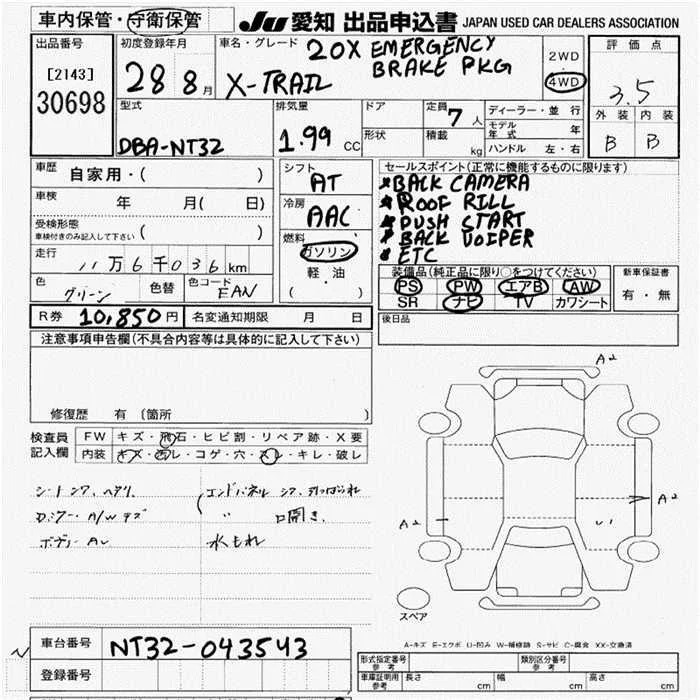 車内保管・守衛保管
JU 愛知 出品申込書 JAPAN USED CAR DEALERS ASSOCIATION
出品番号
[2143]
30698
初度登録年月
28 8月
車名・グレード
X-TRAIL
20X EMERGENCY
BRAKE PKG
2WD
4WD
評価点
3.5
外装 内装
B B
型式
DBA-NT32
排気量
1.99 CC
ドア
形状
定員 7人
積載 kg
ディーラー・並行
モデル年式 年
ハンドル 左・右
車歴 自家用・( )
車検 年 月( 日)
受検形態
車検付きのみ記入して下さい ( )
走行 11万6千036km
色 グリーン 色替 色コード EAN
シフト
AT
冷房
AAC
燃料
ガソリン
軽・油
( )
セールスポイント(正常に機能するものに限ります)
*BACK CAMERA
*ROOF RILL
*PUSH START
*BACK VOIPER
*ETC
装備品(純正品に限り○をつけてください)
PS PW エアB AW
SR ナビ TV カワシート
新車保証書
有・無
R券 10,850円 名変通知期限 月 日
後日品
注意事項申告欄(不具合内容等は具体的に記入して下さい)
修復歴 有 (箇所 )
検査員
記入欄
FW キズ・飛石・ヒビ割・リペア跡・X要
内装 キズ・汚レ・コゲ・穴・スレ・キレ・破レ
エンドパネル
〃 口開き
水もれ
A2
A2
A2
スペア
A-キズ E-エクボ U-凹み W-補修跡 S-サビ C-腐食 XX-交換済
車台番号 NT32-043543
登録番号
形式指定番号 参考
類別区分番号 参考
車庫証明用 参考 長さ cm 幅 cm 高さ cm